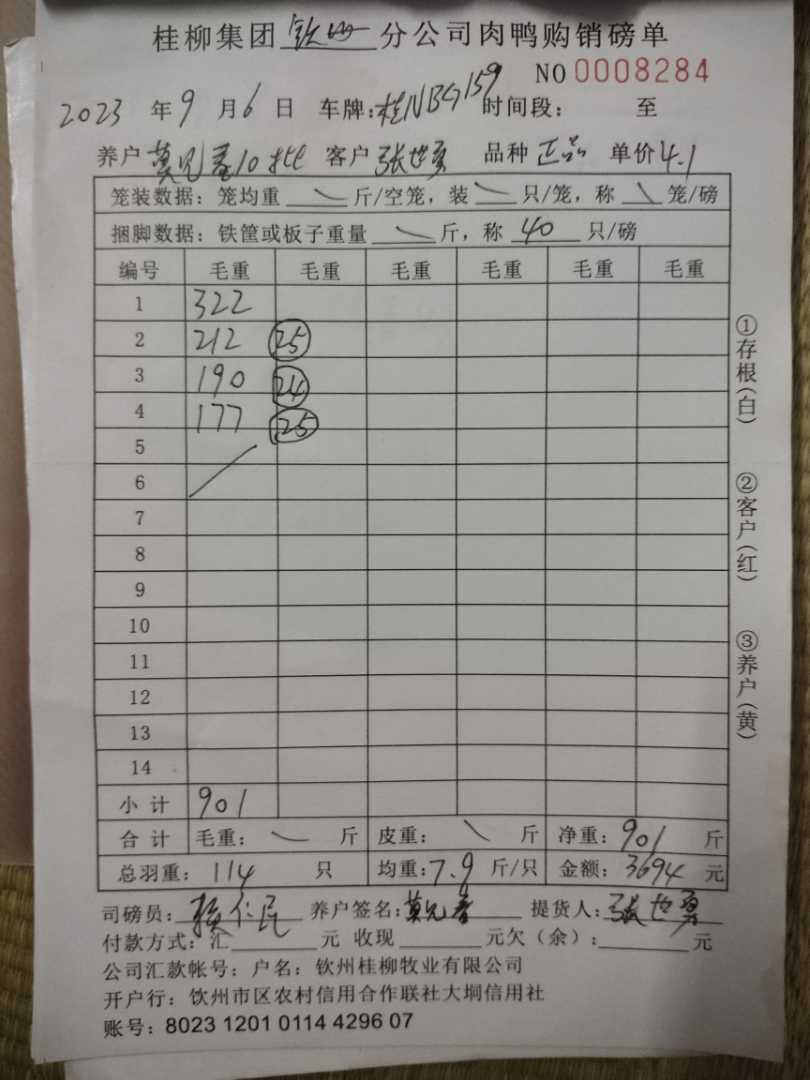 桂柳集团 钦州 分公司肉鸭购销磅单
NO 0008284
2023 年 9 月 6 日 车牌:桂NBG159 时间段: 至
养户 10批 客户 张世勇 品种 正品 单价 4.1
笼装数据:笼均重 \ 斤/空笼,装 \ 只/笼,称 \ 笼/磅
捆脚数据:铁筐或板子重量 \ 斤,称 40 只/磅
编号 毛重 毛重 毛重 毛重 毛重 毛重
1 322
2 212 25
3 190 24
4 177 25
5
6
7
8
9
10
11
12
13
14
小计 901
合计 毛重: \ 斤 皮重: \ 斤 净重: 901 斤
总羽重: 114 只 均重: 7.9 斤/只 金额: 3694 元
司磅员: 养户签名: 提货人: 张世勇
付款方式:汇 元 收现 元欠(余): 元
公司汇款帐号:户名:钦州桂柳牧业有限公司
开户行:饮州市区农村信用合作联社大垌信用社
账号:8023 1201 0114 4296 07
①存根(白)
②客户(红)
③养户(黄)